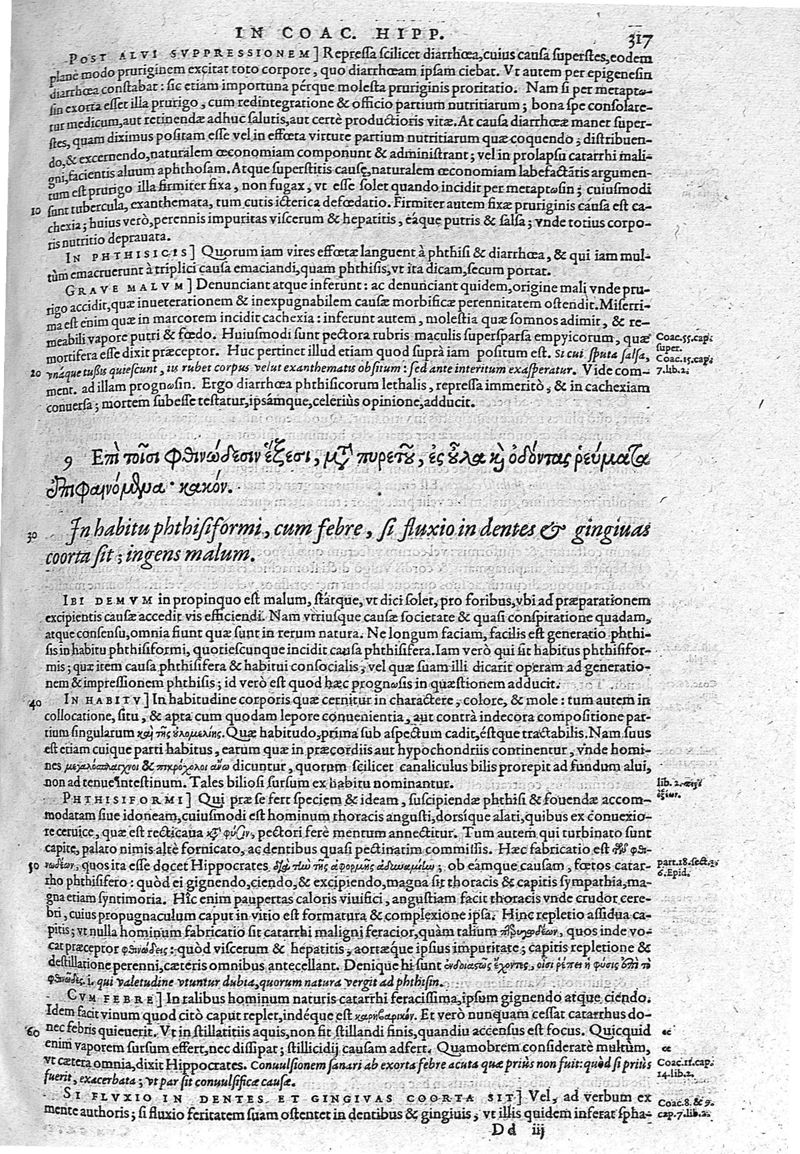 IN COAC. HIPP. 317
POST ALVI SVPPRESSIONEM] Repressa scilicet diarrhœa, cuius causa superstes, eodem
planè modo pruriginem excitat toto corpore, quo diarrhœam ipsam ciebat. Vt autem per epigenesin
diarrhœa constabat: sic etiam importuna pérque molesta pruriginis proritatio. Nam si per metaptω-
sin exorta esset illa prurigo, cum redintegratione & officio partium nutritiarum; bona spe consolare-
tur medicum, aut retinendæ adhuc salutis, aut certè productioris vitæ. At causa diarrhœæ manet super-
stes, quam diximus positam esse vel in effœta virtute partium nutritiarum quæ coquendo, distribuen-
do, & excernendo, naturalem œconomiam componunt & administrant; vel in prolapsu catarrhi mali-
gni, facientis aluum aphthosam. Atque superstitis causæ, naturalem œconomiam labefactātis argumen-
tum est prurigo illa firmiter fixa, non fugax, vt esse solet quando incidit per metaptωsin; cuiusmodi
10 sunt tubercula, exanthemata, tum cutis icterica defœdatio. Firmiter autem fixæ pruriginis causa est ca-
chexia; huius verò, perennis impuritas viscerum & hepatitis, eáque putris & salsa; vnde totius corpo-
ris nutritio deprauata.
IN PHTHISICIS] Quorum iam vires effœtæ languent à phthisi & diarrhœa, & qui iam mul-
tùm emacruerunt à triplici causa emaciandi, quam phthisis, vt ita dicam, secum portat.
GRAVE MALVM] Denunciant atque inferunt: ac denunciant quidem, origine mali vnde pru-
rigo accidit, quæ inueterationem & inexpugnabilem causæ morbificæ perennitatem ostendit. Miserri-
ma est enim quæ in marcorem incidit cachexia: inferunt autem, molestia quæ somnos adimit, & re-
meabili vapore putri & fœdo. Huiusmodi sunt pectora rubris maculis supersparsa empyicorum, quæ
Coac. 55. cap.
mortifera esse dixit præceptor. Huc pertinet illud etiam quod suprà iam positum est. Si cui sputa salsa,
super.
Coac. 15. cap.
20 vnáque tußis quiescunt, iis rubet corpus velut exanthematis obsitum: sed ante interitum exasperatur. Vide com-
7. lib. 2.
ment. ad illam prognosin. Ergo diarrhœa phthisicorum lethalis, repressa immeritò, & in cachexiam
conuersa; mortem subesse testatur, ipsámque, celeriùs opinione, adducit.
9 Ἐπὶ τοῖσι φθινώδεσιν ἕξεσι, μετὰ πυρετοῦ, ἐς οὖλα καὶ ὀδόντας ῥεύματα
ἐπιφαινόμενα· κακόν.
30 In habitu phthisiformi, cum febre, si fluxio in dentes & gingiuas
coorta sit; ingens malum.
IBI DEMVM in propinquo est malum, státque, vt dici solet, pro foribus, vbi ad præparationem
excipientis causæ accedit vis efficiendi. Nam vtriusque causæ societate & quasi conspiratione quadam,
atque consensu, omnia fiunt quæ sunt in rerum natura. Ne longum faciam, facilis est generatio phthi-
sis in habitu phthisiformi, quotiescunque incidit causa phthisifera. Iam verò qui sit habitus phthisifor-
mis; quæ item causa phthisifera & habitui consocialis, vel quæ suam illi dicarit operam ad generatio-
nem & impressionem phthisis; id verò est quod hæc prognωsis in quæstionem adducit.
40 IN HABITV] In habitudine corporis quæ cernitur in charactere, colore, & mole: tum autem in
collocatione, situ, & apta cum quodam lepore conuenientia, aut contrà indecora compositione par-
tium singularum καὶ τῆς οὐλομελίης. Quæ habitudo, prima sub aspectum cadit, éstque tractabilis. Nam suus
est etiam cuique parti habitus, earum quæ in præcordiis aut hypochondriis continentur, vnde homi-
nes μεγαλόσπλαγχνοι & πικρόχολοι ἄνω dicuntur, quorum scilicet canaliculus bilis prorepit ad fundum alui,
non ad tenue intestinum. Tales biliosi sursum ex habitu nominantur.
lib. 2. περὶ
PHTHISIFORMI] Qui præ se fert speciem & ideam, suscipiendæ phthisi & fouendæ accom-
modatam siue idoneam, cuiusmodi est hominum thoracis angusti, dorsíque alati, quibus ex conuexio-
re ceruice, quæ est recticana κατὰ φύσιν, pectori ferè mentum annectitur. Tum autem qui turbinato sunt
capite, palato nimis altè fornicato, ac dentibus quasi pectinatim commissis. Hæc fabricatio est τῶν φθι-
part. 18. sect. 3.
50 νωδέων, quos ita esse docet Hippocrates διὰ τὴν τῆς ἀφορμῆς ἀδυναμίην; ob eámque causam, fœtos catar-
6. Epid.
rho phthisifero: quòd ei gignendo, ciendo, & excipiendo, magna sit thoracis & capitis sympathia, ma-
gna etiam syntimoria. Hîc enim paupertas caloris viuifici, angustiam facit thoracis vnde crudor cere-
bri, cuius propugnaculum caput in vitio est formatura & complexione ipsa. Hinc repletio assidua ca-
pitis; vt nulla hominum fabricatio sit catarrhi maligni feracior, quàm talium πτερυγωδέων, quos inde vo-
cat præceptor φθινώδεις: quòd viscerum & hepatitis, aortæque ipsius impuritate; capitis repletione &
destillatione perenni, cæteris omnibus antecellant. Denique hi sunt ἐνδοιαστῶς ἔχοντες, οἷσι ῥέπει ἡ φύσις ἐπὶ τὸ
φθινῶδες. i. qui valetudine vtuntur dubia, quorum natura vergit ad phthisin.
CVM FEBRE] In talibus hominum naturis catarrhi feracissima, ipsum gignendo atque ciendo.
Idem facit vinum quod citò caput replet, indéque est καρηβαρικόν. Et verò nunquam cessat catarrhus do-
60 nec febris quieuerit. Vt in stillatitiis aquis, non sit stillandi finis, quandiu accensus est focus. Quicquid
enim vaporem sursum effert, nec dissipat; stillicidij causam adfert. Quamobrem consideratè multùm,
vt cætera omnia, dixit Hippocrates. Conuulsionem sanari ab exorta febre acuta quæ priùs non fuit: quòd si priùs
Coac. 11. cap.
14. lib. 2.
fuerit, exacerbata; vt par sit conuulsificæ causæ.
SI FLVXIO IN DENTES ET GINGIVAS COORTA SIT] Vel, ad verbum ex
Coac. 8. & 9.
mente authoris; si fluxio feritatem suam ostentet in dentibus & gingiuis, vt illis quidem inferat spha-
cap. 7. lib. 2.
Dd iij